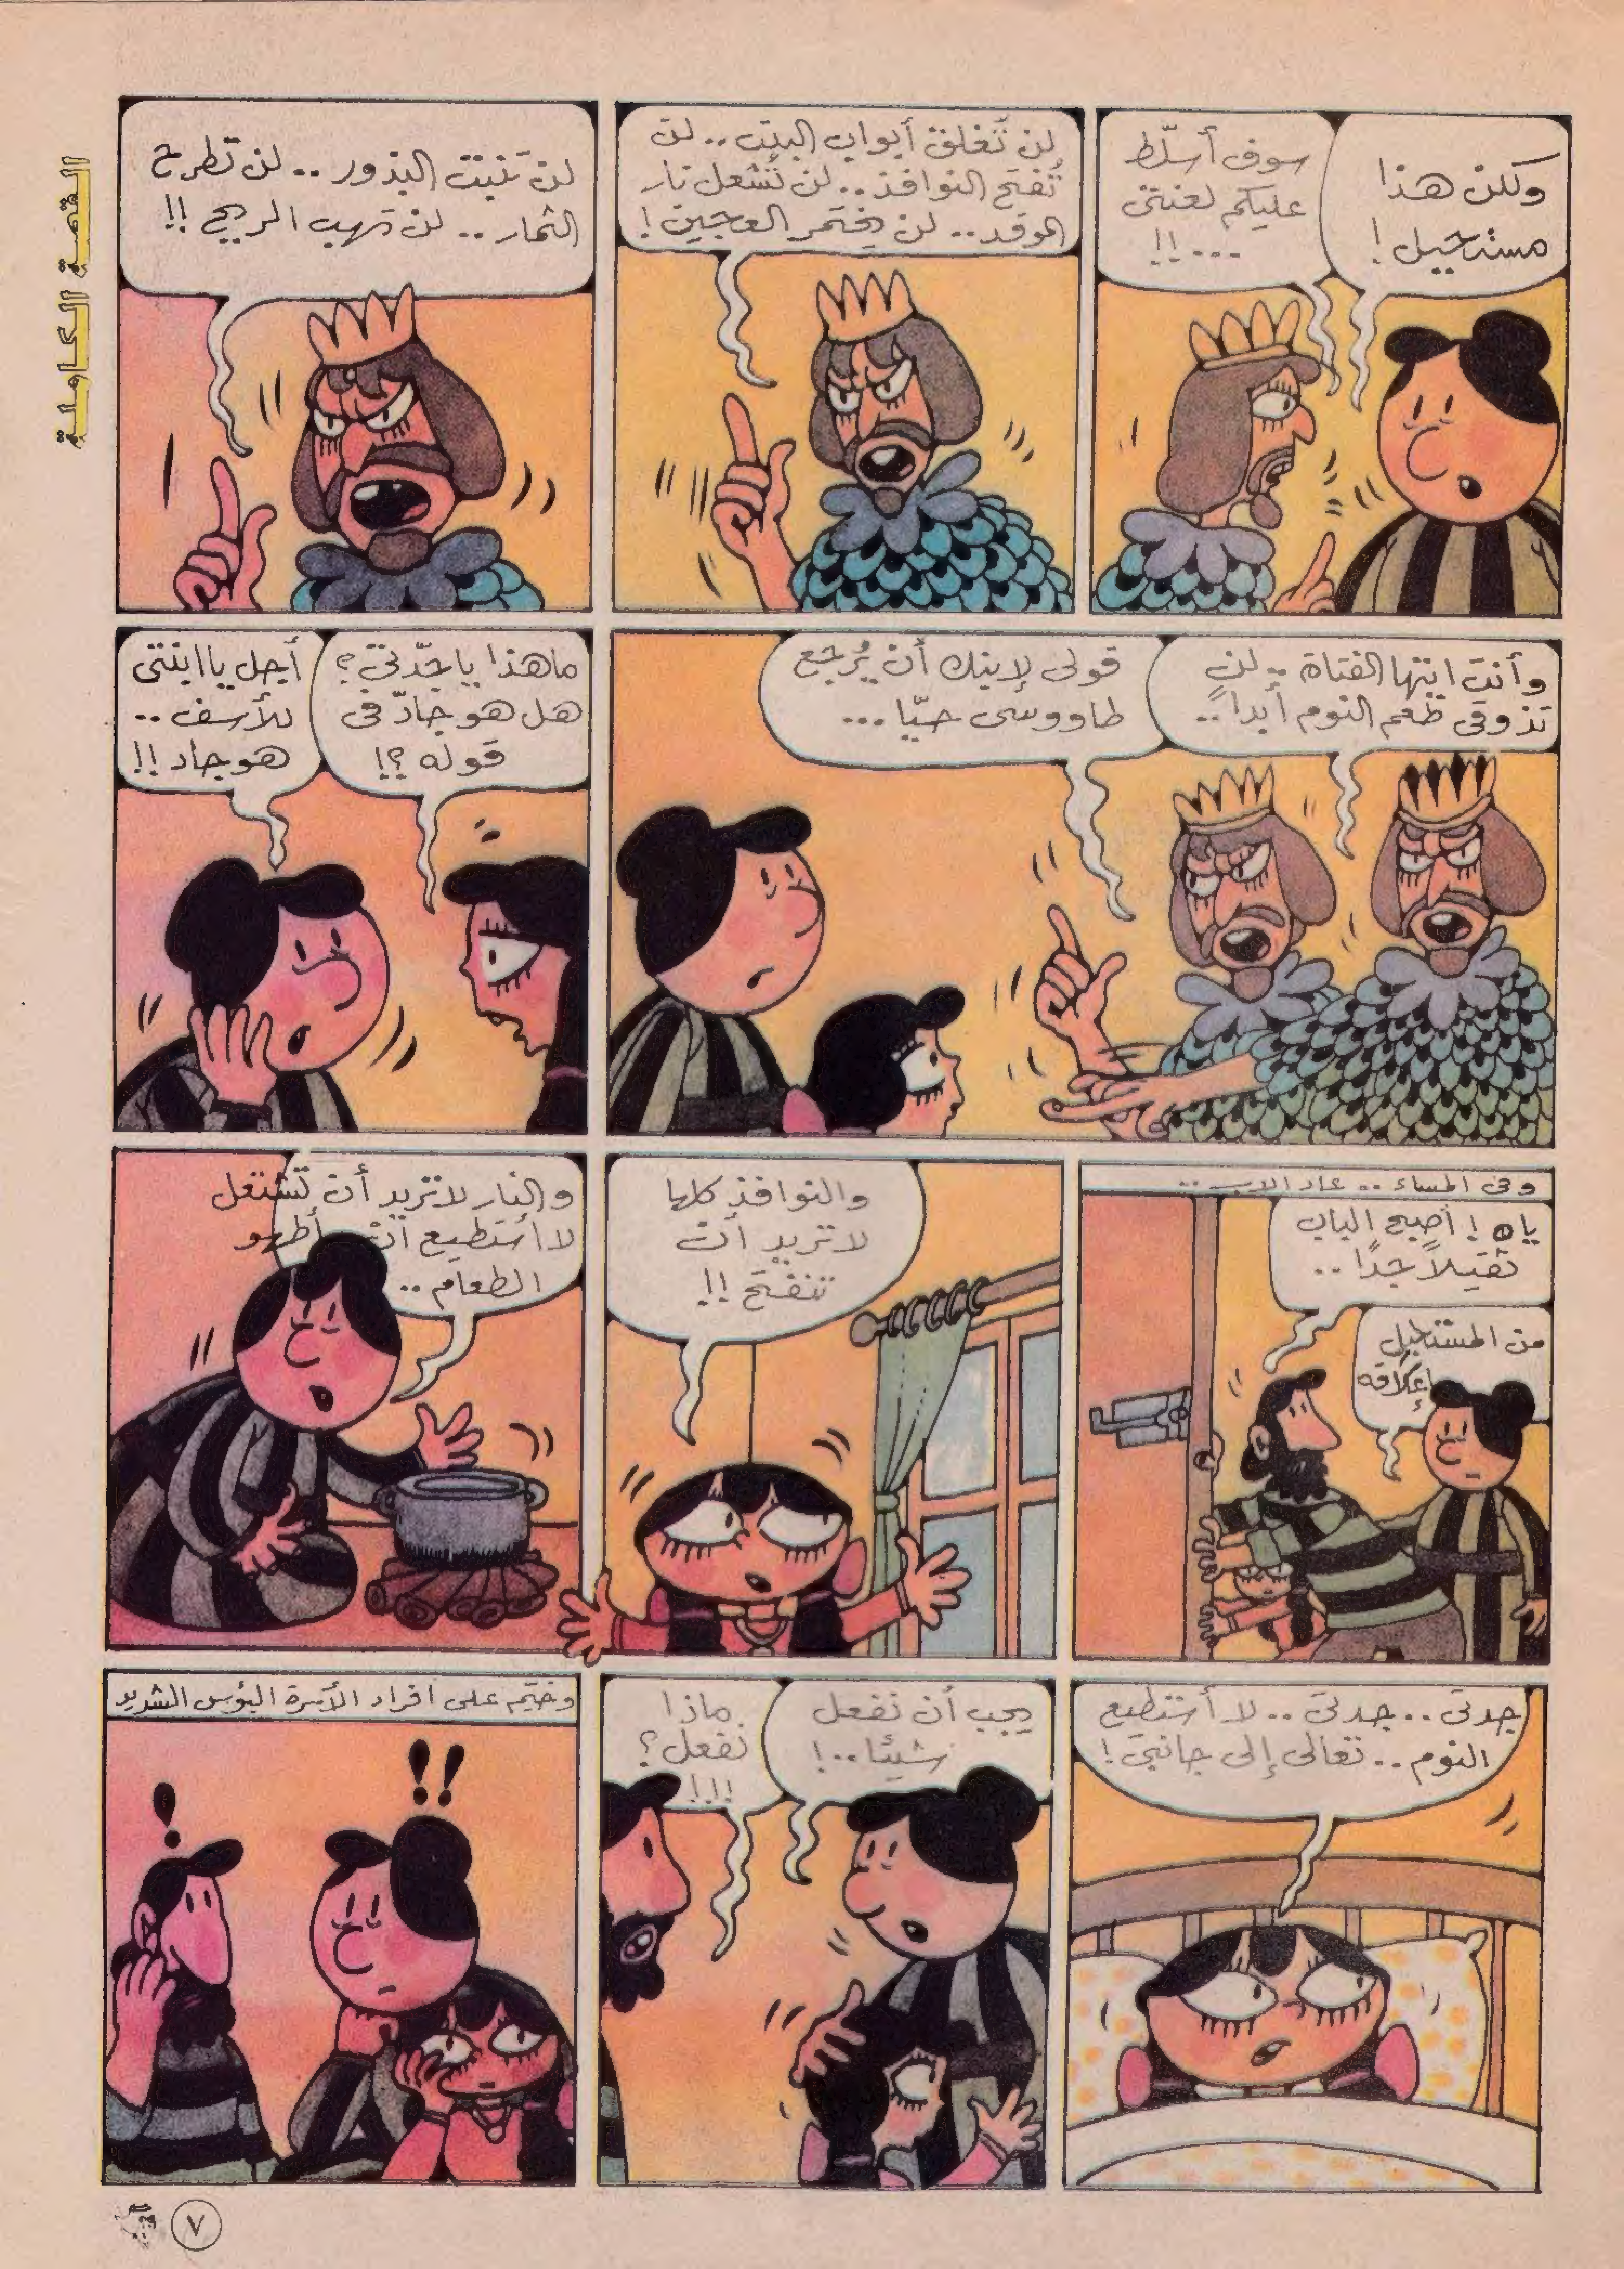 القصة الكاملة
ولكن هذا
مستحيل !
سوف أسلّط
عليكم لعنتى
...!!
لن تُغلق أبواب البيت .. لن
تُفتح النوافذ .. لن تُشعل نار
الموقد .. لن يختمر العجين !
لن تنبت البذور .. لن تطرح
الثمار .. لن تهب الريح !!
وأنت ايتها الفتاة .. لن
تذوقى طعم النوم أبداً ..
قولى لإبنك أن يُرجع
طاووسى حيّا ...
ماهذا ياجدّتى ؟
هل هو جادّ فى
قوله ؟!
أجل يا ابنتى
للأسف ..
هو جاد !!
وفى المساء .. عاد الاب ..
ياه ! أصبح الباب
ثقيلاً جدًا ..
من المستحيل
إغلاقه
والنوافذ كلها
لا تريد أن
تنفتح !!
والنار لا تريد أن تشتعل
لا أستطيع أن أطهو
الطعام ..
جدتى .. جدتى .. لا أستطيع
النوم .. تعالى إلى جانبى !
يجب أن نفعل
شيئا ..!
ماذا
نفعل ؟
!!!
وخيّم على افراد الأسرة البؤس الشديد
!
!!
٧